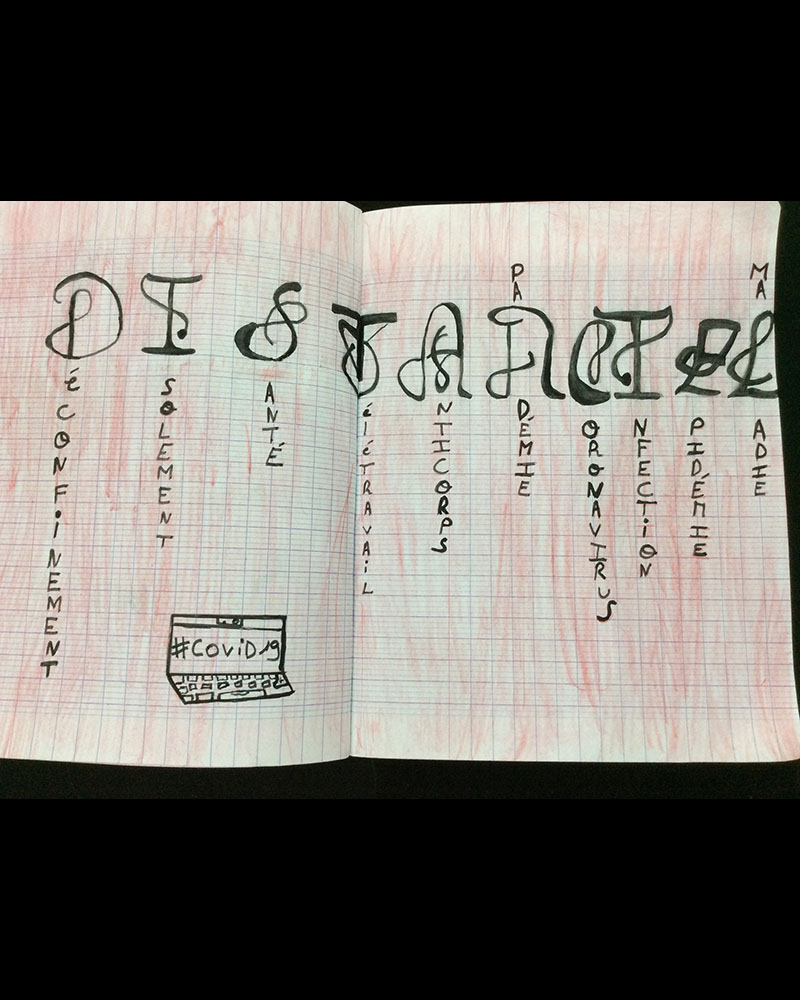 DISTANCIEL
DéCONFiNEMENT
ISOLEMENT
SANTÉ
TéLéTRAVAiL
ANTICORPS
PANDÉMIE
CORONAVIRUS
INFECTiON
EPIDÉMIE
MALADIE
#COViD19